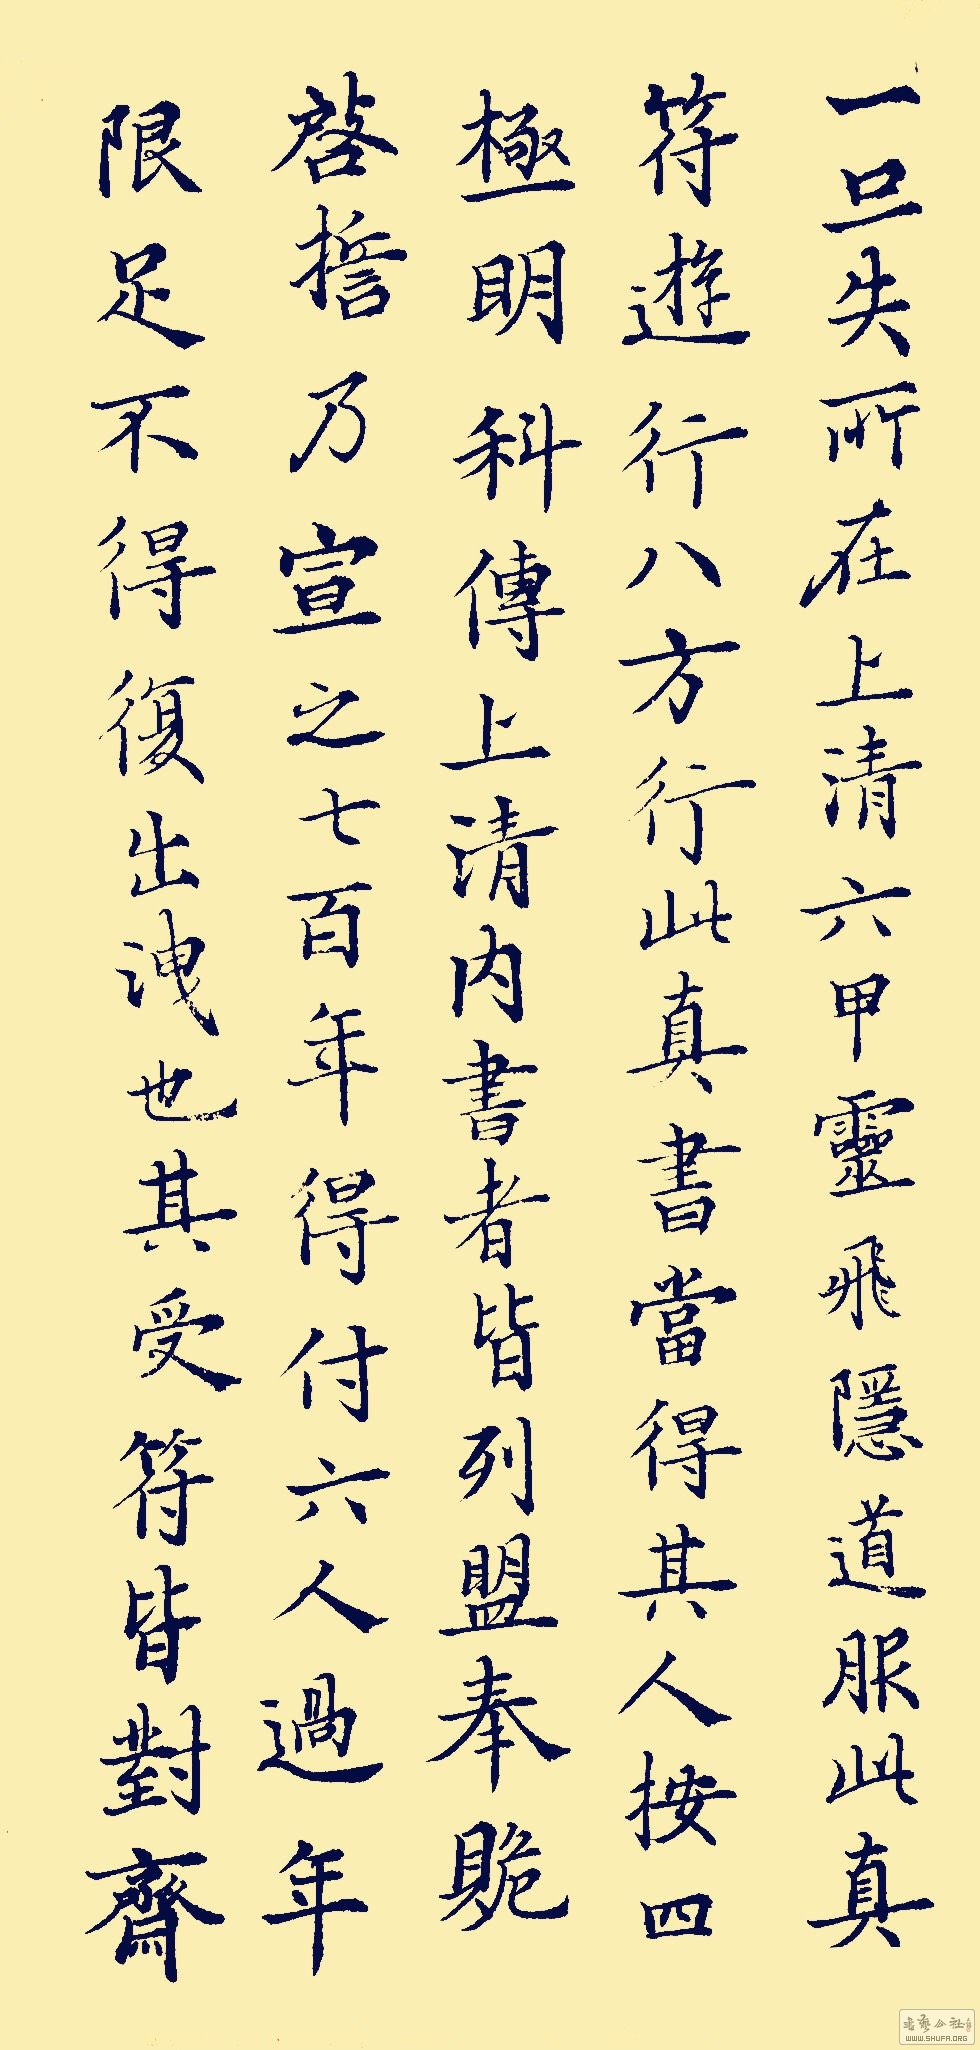 一旦失所在上清六甲靈飛隱道服此真
符遊行八方行此真書當得其人按四
極明科傳上清内書者皆列盟奉贍
啓擔乃宣之七百年得付六人過年
限足不得復出洩也其受符皆對齋
WWW.SHUFA.ORG